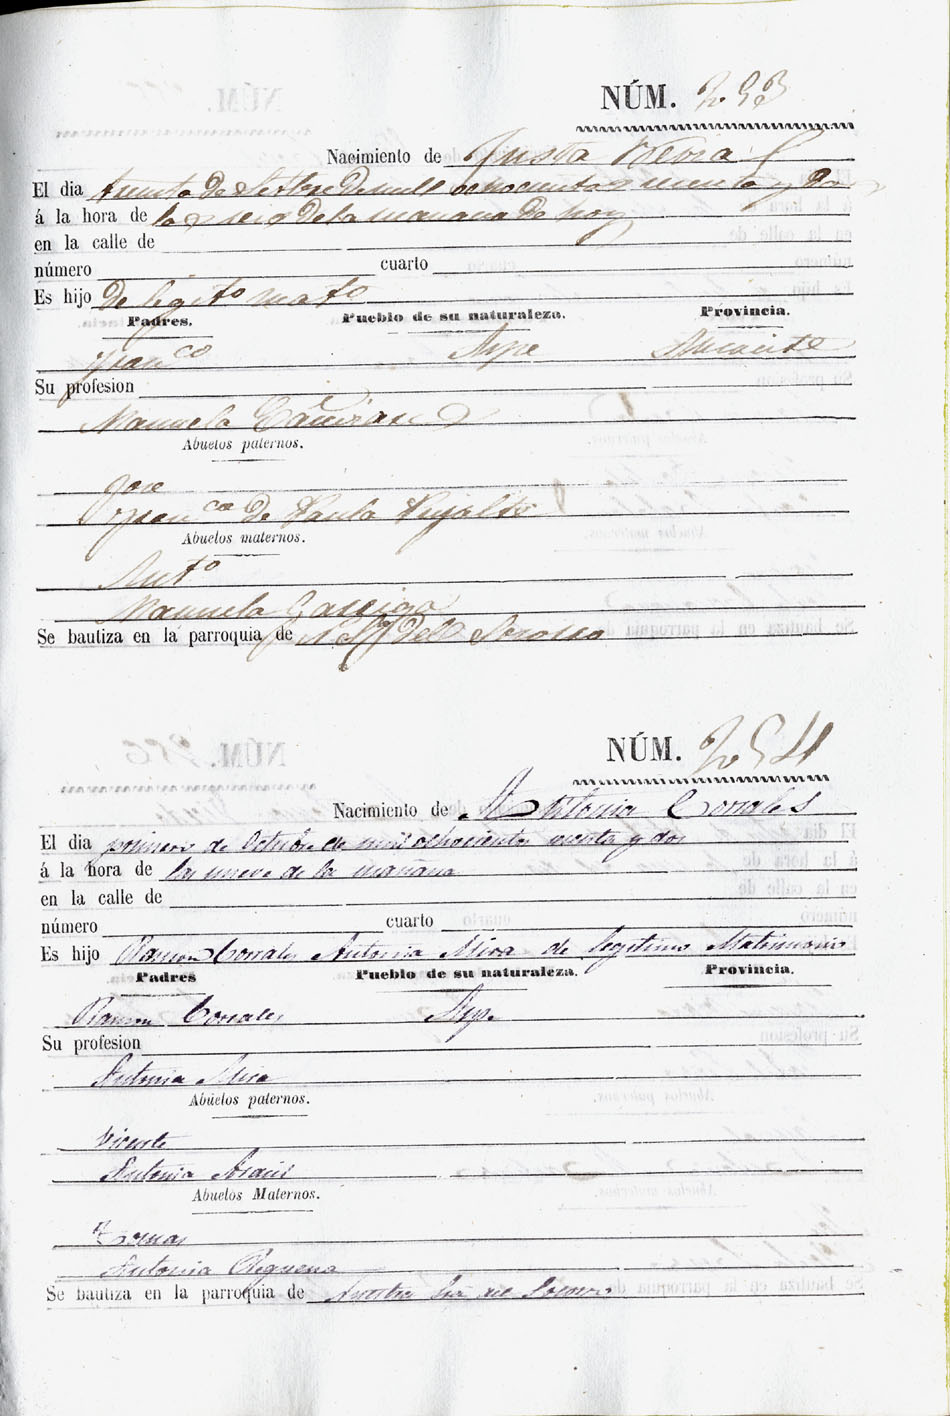 NÚM. 253
Nacimiento de Justa
El dia treinta de Setbre de mill ochocientos secenta y dos
á la hora de las seis de la mañana de hoy
en la calle de
número cuarto
Es hijo de legito mato
Padres. Pueblo de su naturaleza. Provincia.
Franco Aspe Alicante
Su profesion
Manuela
Abuelos paternos.
Jose
Franca de Paula
Abuelos maternos.
Anto
Manuela
Se bautiza en la parroquia de Ntra Sra del Socorro
NÚM. 254
Nacimiento de Antonia Corrales
El dia primero de Octubre de mil ochocientos sesenta y dos
á la hora de las nueve de la mañana
en la calle de
número cuarto
Es hijo Ramon Corrales Antonia Mira de legitimo Matrimonio
Padres Pueblo de su naturaleza. Provincia.
Ramon Corrales Aspe
Su profesion
Antonia Mira
Abuelos paternos.
Vicente
Antonia
Abuelos Maternos.
Tomas
Antonia Requena
Se bautiza en la parroquia de Nuestra Sra del Socorro